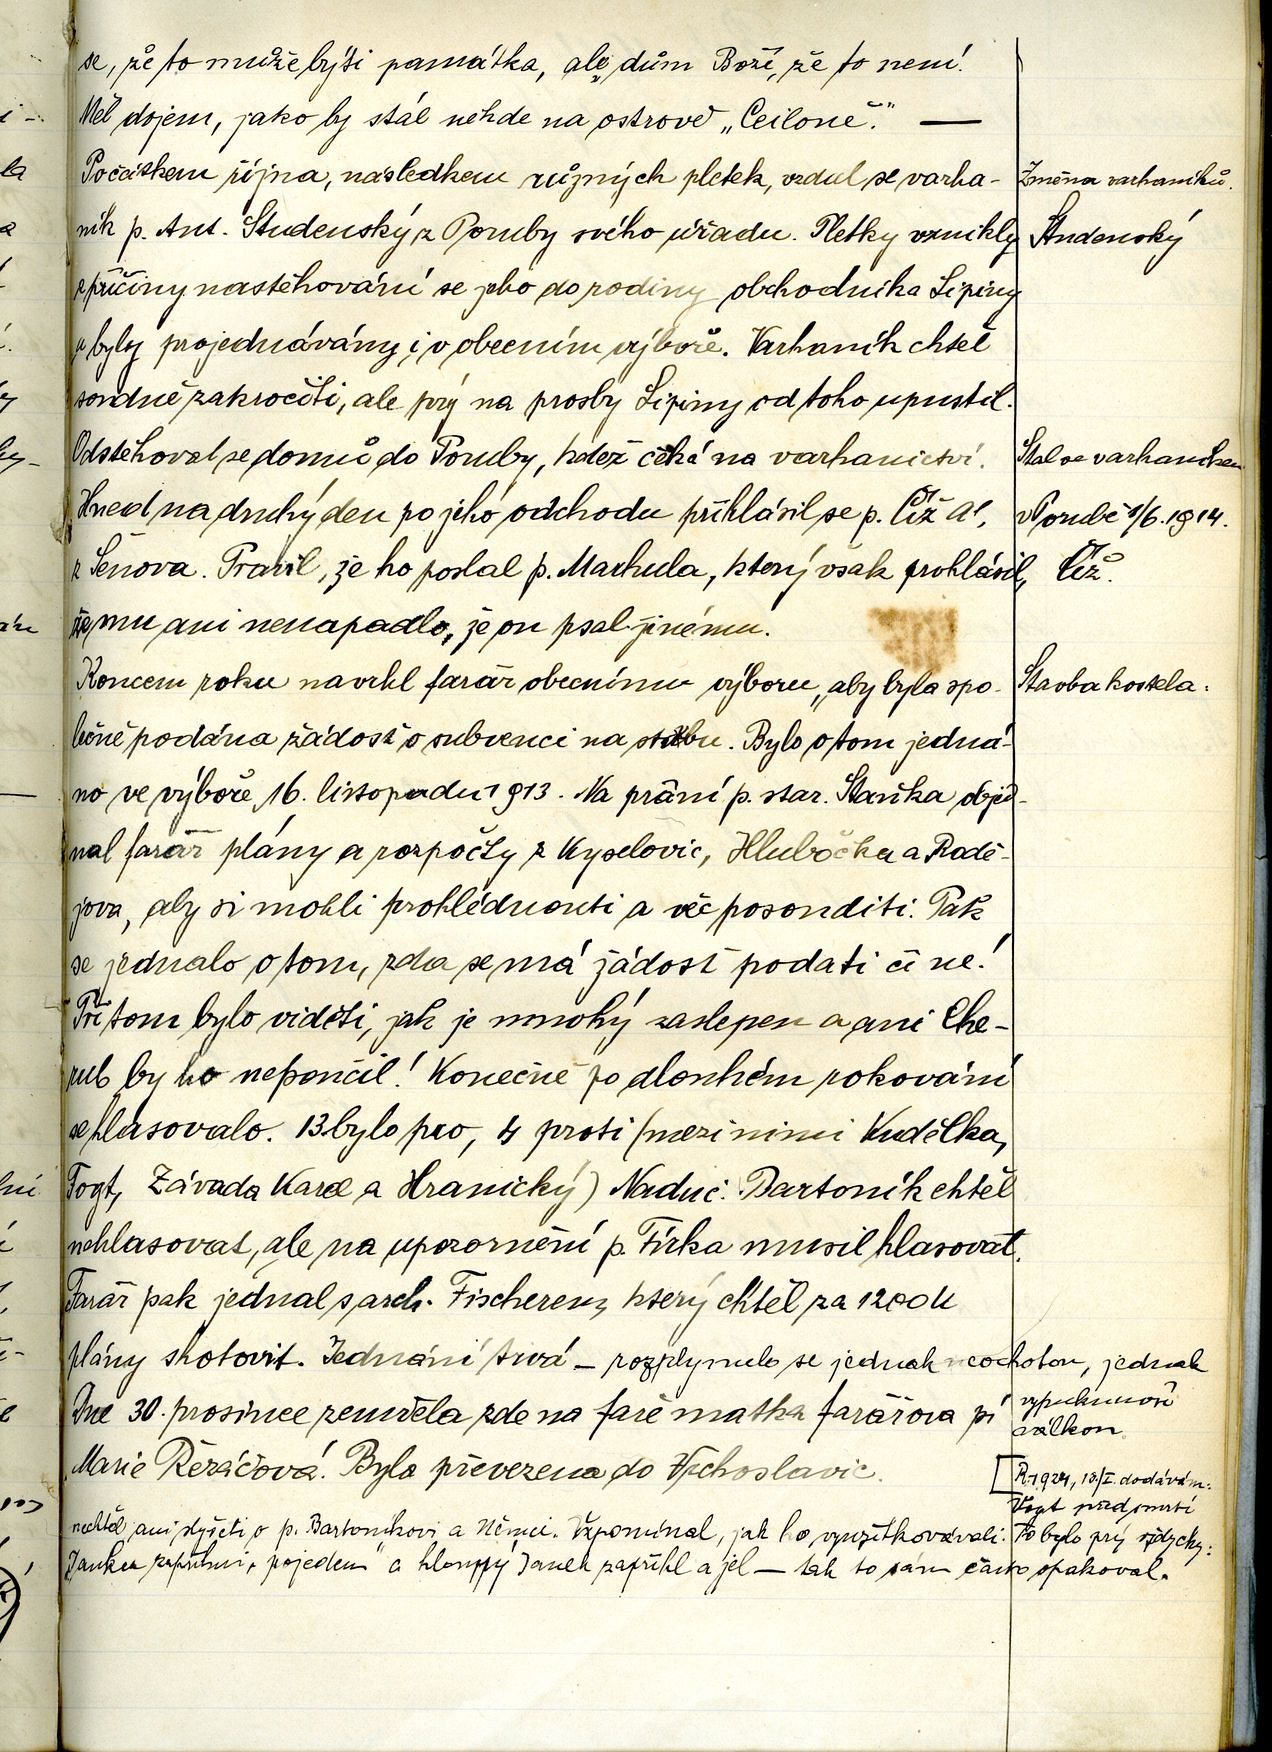 se, že to může býti památka, ale „dům Boží, že to není.
Měl dojem, jako by stál někde na ostrově „Ceiloně.“ —
Počátkem října, následkem různých pletek, vzdal se varha-
Změna varhaníků.
ník p. Ant. Studenský z Poruby svého úřadu. Pletky vznikly
Studenský
z příčiny nastěhování se jeho do rodiny obchodníka Lipiny
a byly projednávány i v obecním výboře. Varhaník chtěl
soudně zakročiti, ale prý na prosby Lipiny od toho upustil.
Odstěhoval se domů do Poruby, kdež čeká na varhanictví.
Stal se varhaníkem
Hned na druhý den po jeho odchodu přihlásil se p. Číž Al.
v Porubě 1/6. 1914.
z Šenova. Pravil, že ho poslal p. Markula, který však prohlásil,
Číž.
že mu ani nenapadlo, že on psal jinému.
Koncem roku navrhl farář obecnímu výboru, „aby byla spo-
Stavba kostela.
lečně podána žádost o subvenci na stavbu. Bylo o tom jedná-
no ve výboře 16. listopadu 1913. Na přání p. star. Staňka objed-
nal farář plány a rozpočty z Kyselovic, Hlubočka a Radě-
jova, aby si mohli prohlédnouti a věc posouditi. Pak
se jednalo o tom, zda se má žádost podati či ne!
Při tom bylo viděti, jak je mnohý zaslepen a ani Che-
rub by ho nepoučil! Konečně po dlouhém rokování
se hlasovalo. 13 bylo pro, 4 proti (mezi nimi Kudělka,
Fogt, Závada Karel a Hranický) Naduč. Bartoník chtěl
nehlasovat, ale na upozornění p. Fírka musil hlasovat.
Farář pak jednal s arch. Fischerem, který chtěl za 1200 K
plány shotovit. Jednání trvá – rozplynulo se jednak neochotou, jednak
vypuknuvší
válkou.
Dne 30. prosince zemřela zde na faře matka farářova pí
Marie Řezáčová. Byla převezena do Vrchoslavic.
[R. 1924, 13/I. dodávám:
Fogt před smrtí
nechtěl ani slyšeti o p. Bartoníkovi a Němci. Vzpomínal, jak ho využitkovávali. To bylo prý vždycky:
„Janku zapřáhni, pojedem“ a hloupý Janek zapřáhl a jel — tak to sám často opakoval.